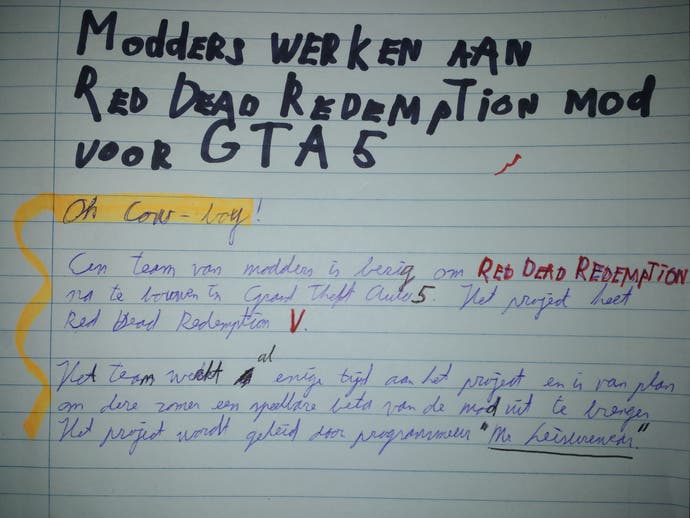 Modders werken aan
Red Dead Redemption mod
voor GTA 5
Oh Cow-boy!
Een team van modders is bezig om RED DEAD REDEMPTION
na te bouwen in Grand Theft Auto 5. Het project heet
Red Dead Redemption V.
al
Het team werkt enige tijd aan het project en is van plan
om deze zomer een speelbare beta van de mod uit te brengen
Het project wordt geleid door programmeur "Mr Leisurewear."